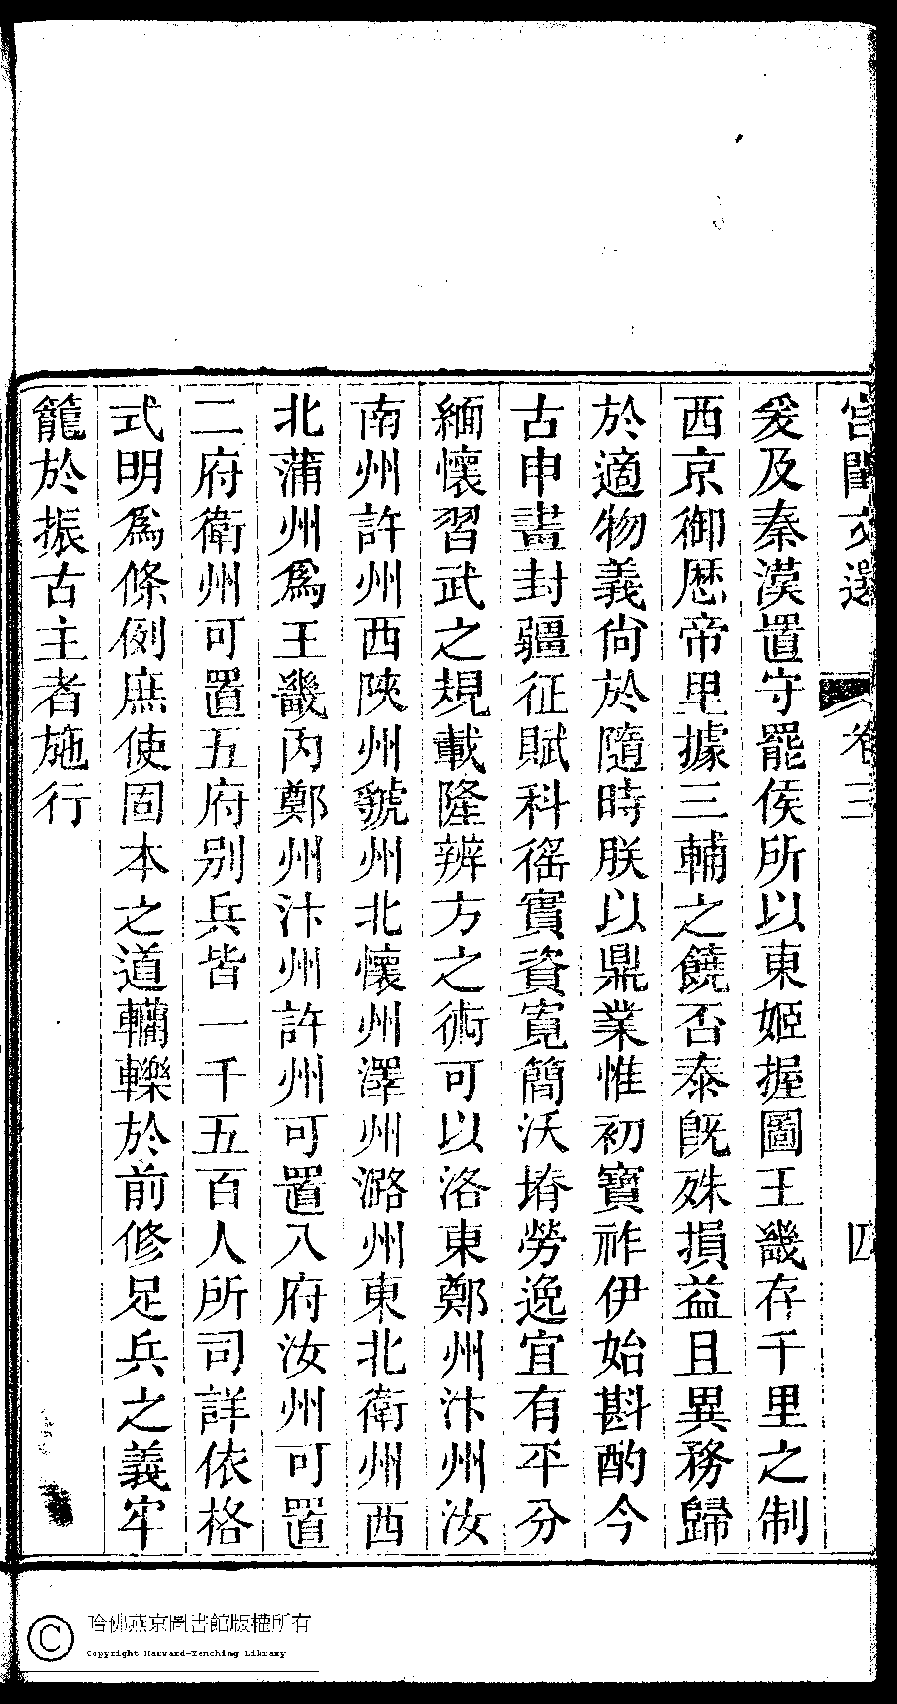 宮閨文選 卷三 四
爰及秦漢置守罷侯所以東姬握圖王畿存千里之制
西京御厯帝里據三輔之饒否泰旣殊損益且異務歸
於適物義尙於隨時朕以鼎業惟初寶祚伊始斟酌今
古申畫封疆征賦科徭實資寬簡沃塉勞逸宜有平分
緬懷習武之規載隆辨方之術可以洛東鄭州汴州汝
南州許州西陝州虢州北懷州澤州潞州東北衛州西
北蒲州爲王畿內鄭州汴州許州可置八府汝州可置
二府衛州可置五府別兵皆一千五百人所司詳依格
式明爲條例庶使固本之道轥轢於前修足兵之義牢
籠於振古主者施行
哈佛燕京圖書館版權所有
Copyright Harvard-Yenching Library